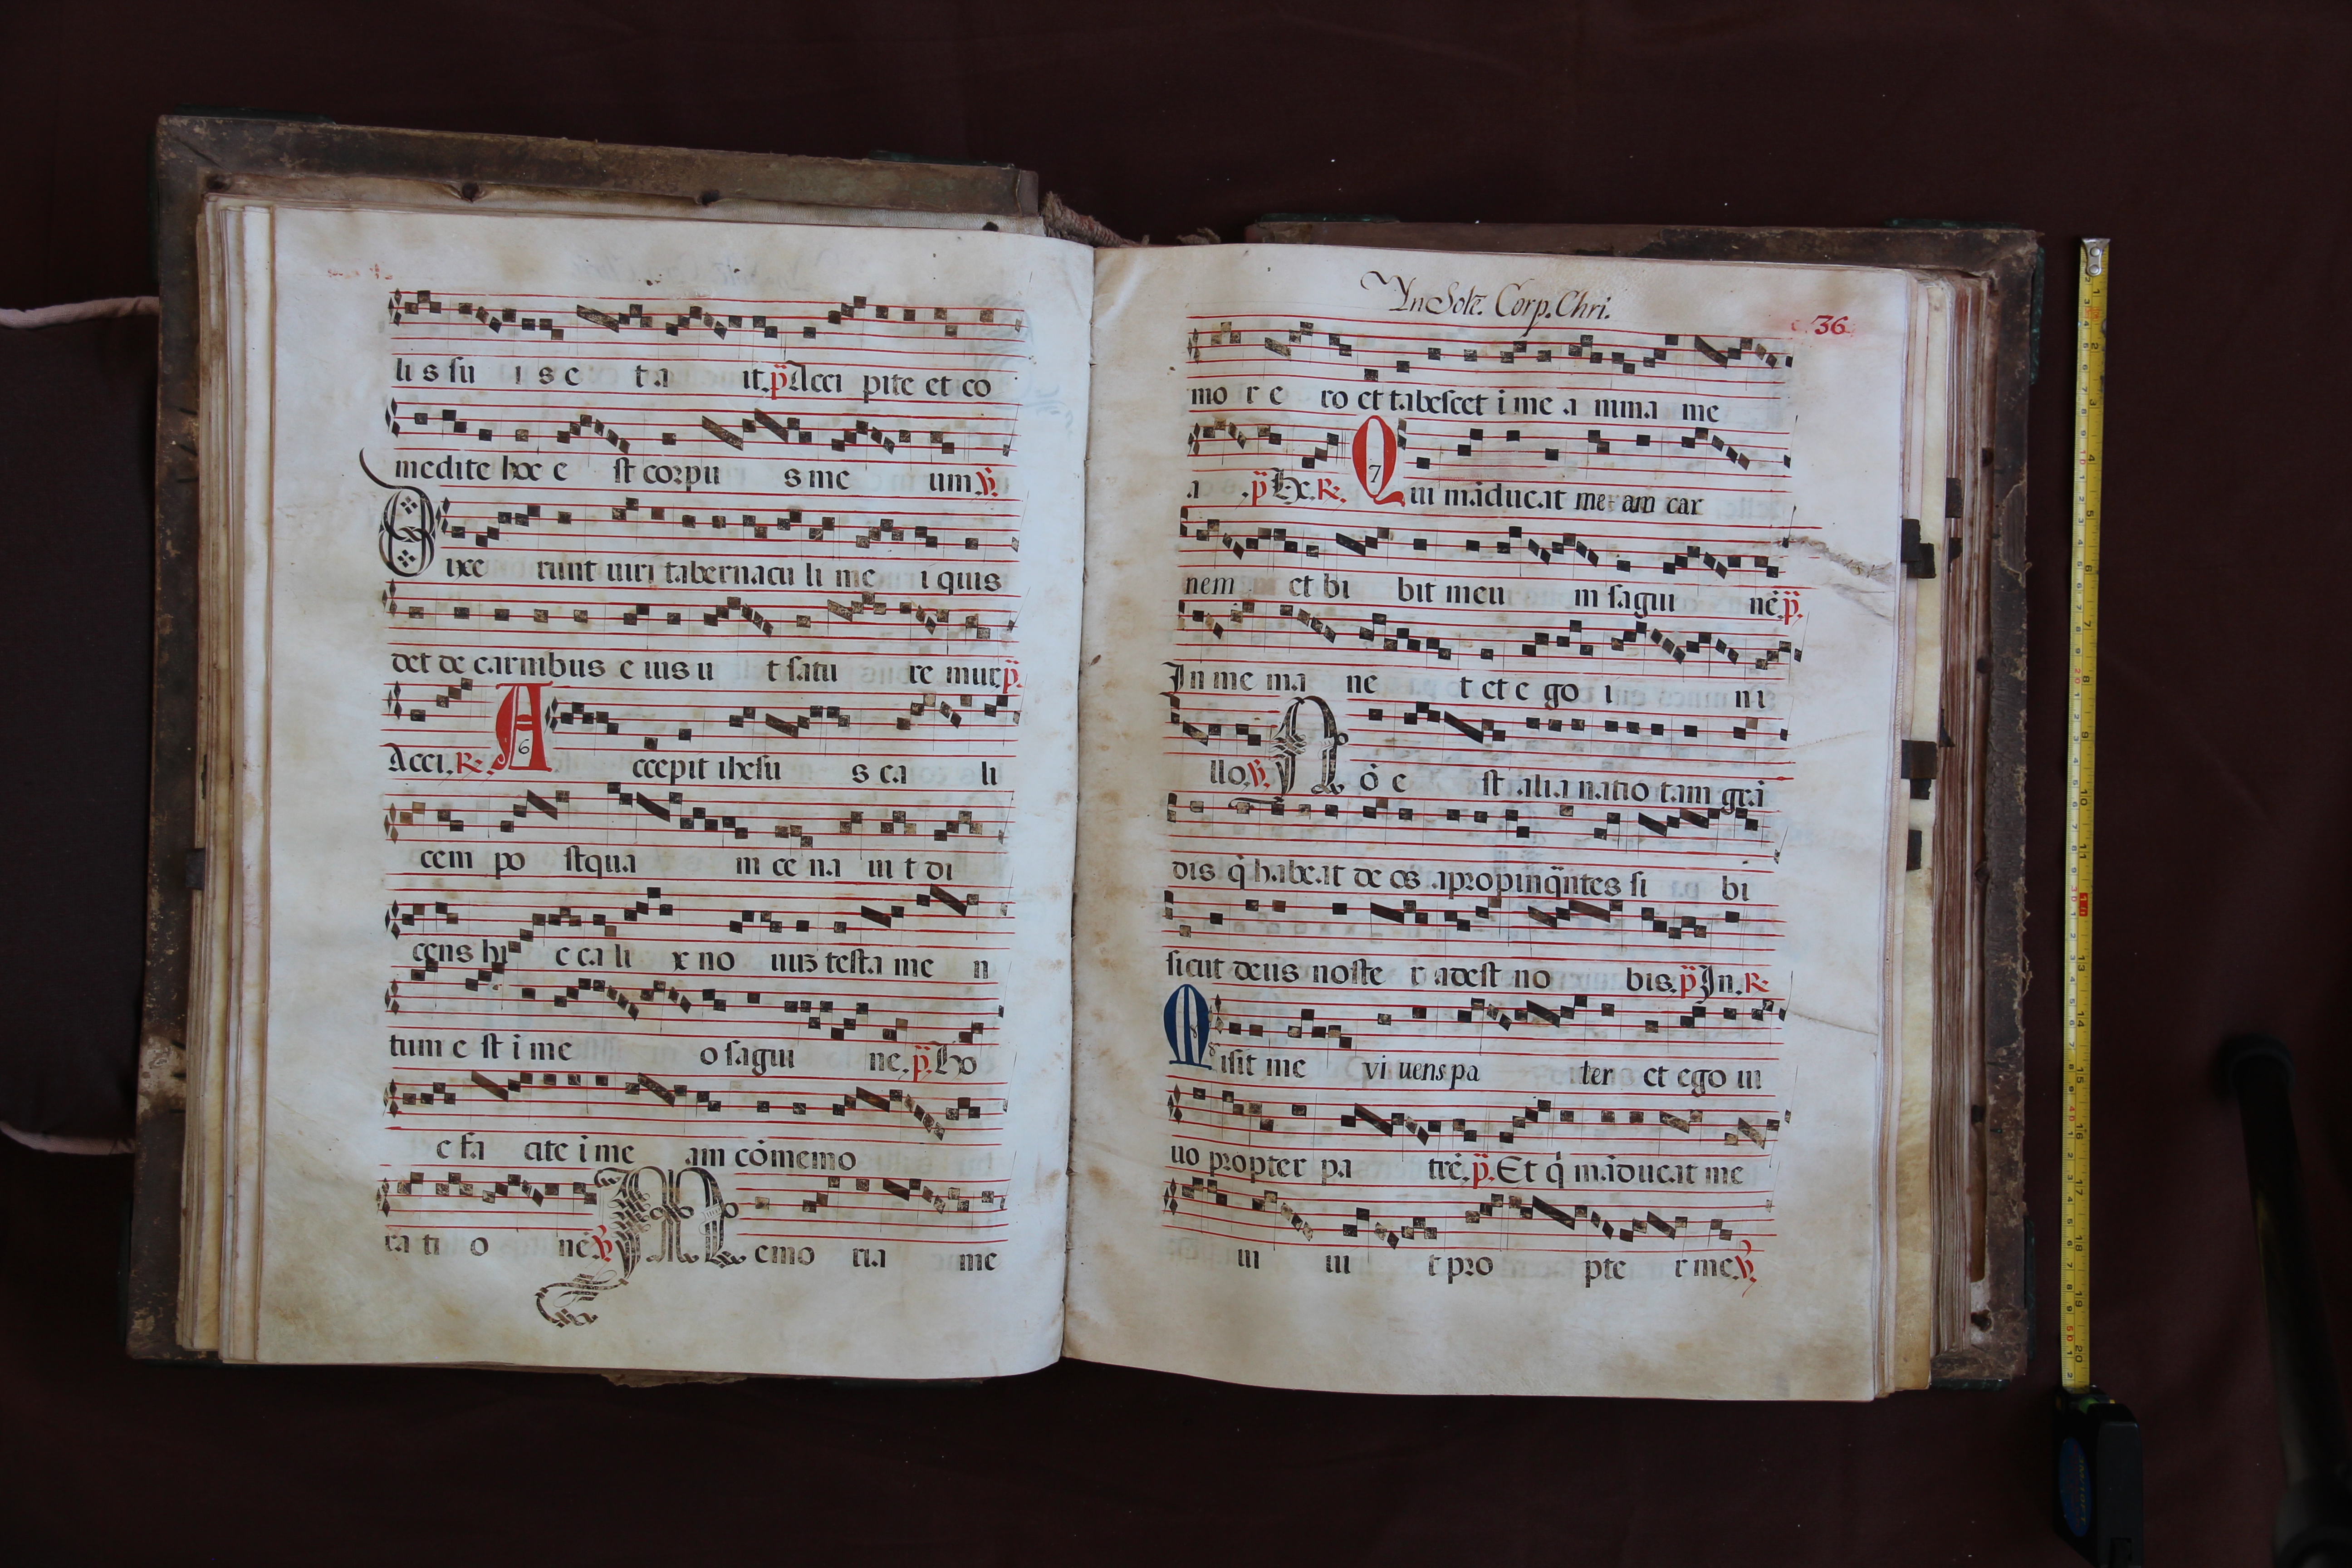 lis su i s c ta it. p Acci pite et co
medite hoc e st corpu s me um. V.
Dixe runt uiri tabernacu li me i quis
det de carnibus e ius u t satu re mur p.
Acci. R. A 6 ccepit ihesu s ca li
cem po stqua m ce na ui t di
cens hi c ca li x no uuȝ testa me n
tum e st i me o sagui ne. p. Ho
c fa cite i me am cōmemo
ra ti o nē V. Memo ria me
In Solē. Corp. Chri.
36
mo r e ro et tabescet i me a nima me
a . p He. R. Q 7 ui māducat me am car
nem et bi bit meu m sagui nē. p.
In me ma ne t et e go i ni
llo. V. Nō e st alia natio tam grā
dis q̇ habeat deos apropinq̄ntes si bi
sicut deus noste r adest no bis. p In. R
M 8 isit me vi uens pa ter et ego ui
uo propter pa trē. p. Et q̇ māducat me
ui ui t pro pte r me. V.